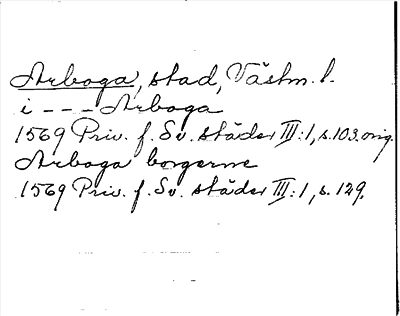 Arboga, stad, Västm. l.
i - - - Arboga
1569 Priv. f. Sv. städer III:1, s. 103. orig.
Arboga borgerne
1569 Priv. f. Sv. städer III:1, s. 129.